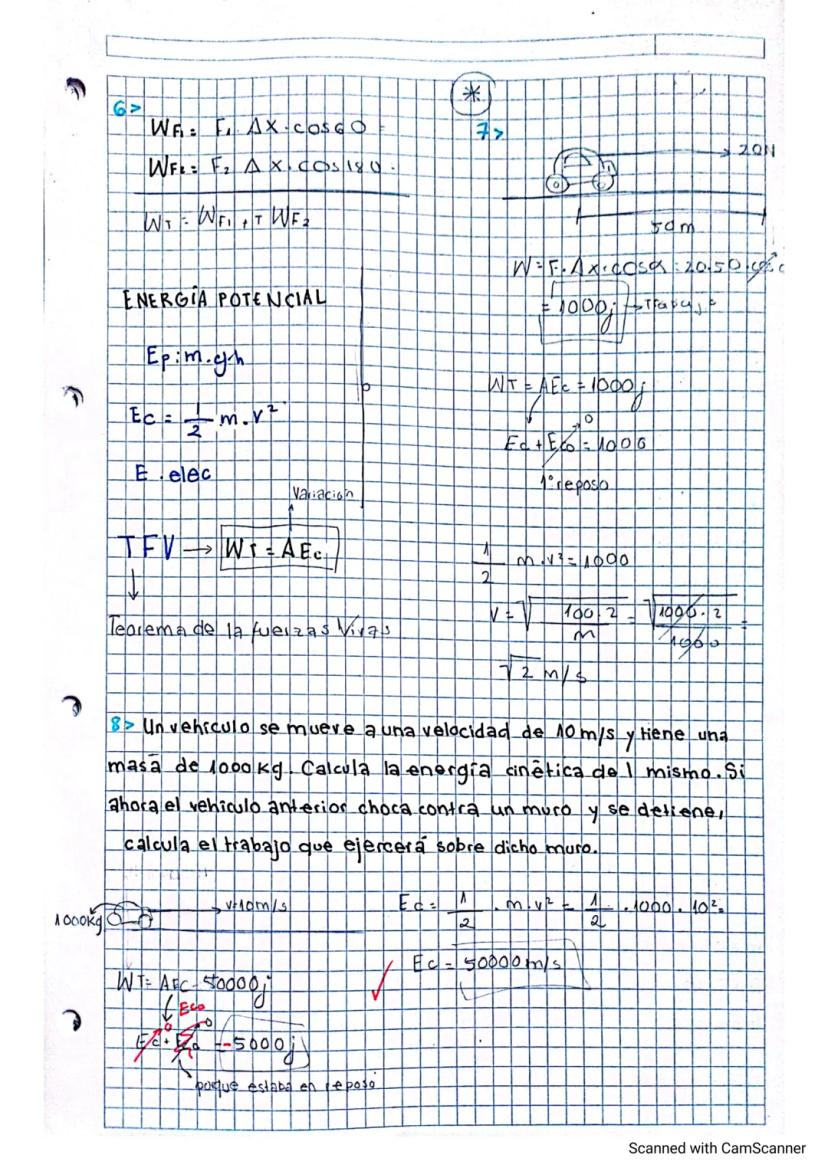 6>
WF1 = F1 ΔX · cos60 =
WF2 = F2 Δ X · cos180 ·
WT = WF1 + T WF2
ENERGÍA POTENCIAL
Ep: m.g.h
Ec = 1/2 m.v²
E.elec
Variación
TFV → WT = ΔEc
Teorema de la fuerzas Vivas
*
7>
20N
50m
W = F.Δx.cosα = 20.50.cos
= 1000j → Trabajo
WT = ΔEc = 1000j
0
Ec + Eco = 1000
1º reposo
1/2 m.v² = 1000
V = √100.2/m = √1000.2/1000 =
√2 m/s
8> Un vehículo se mueve a una velocidad de 10 m/s y tiene una
masa de 1000 kg. Calcula la energía cinética del mismo. Si
ahora el vehículo anterior choca contra un muro y se detiene,
calcula el trabajo que ejercerá sobre dicho muro.
1000kg
v=10m/s
Ec = 1/2 . m.v² = 1/2 .1000.10² =
Ec = 50000 m/s
WT = ΔEC - 50000j
Eco
0
Ec + = -5000j
poque estaba en reposo
Scanned with CamScanner